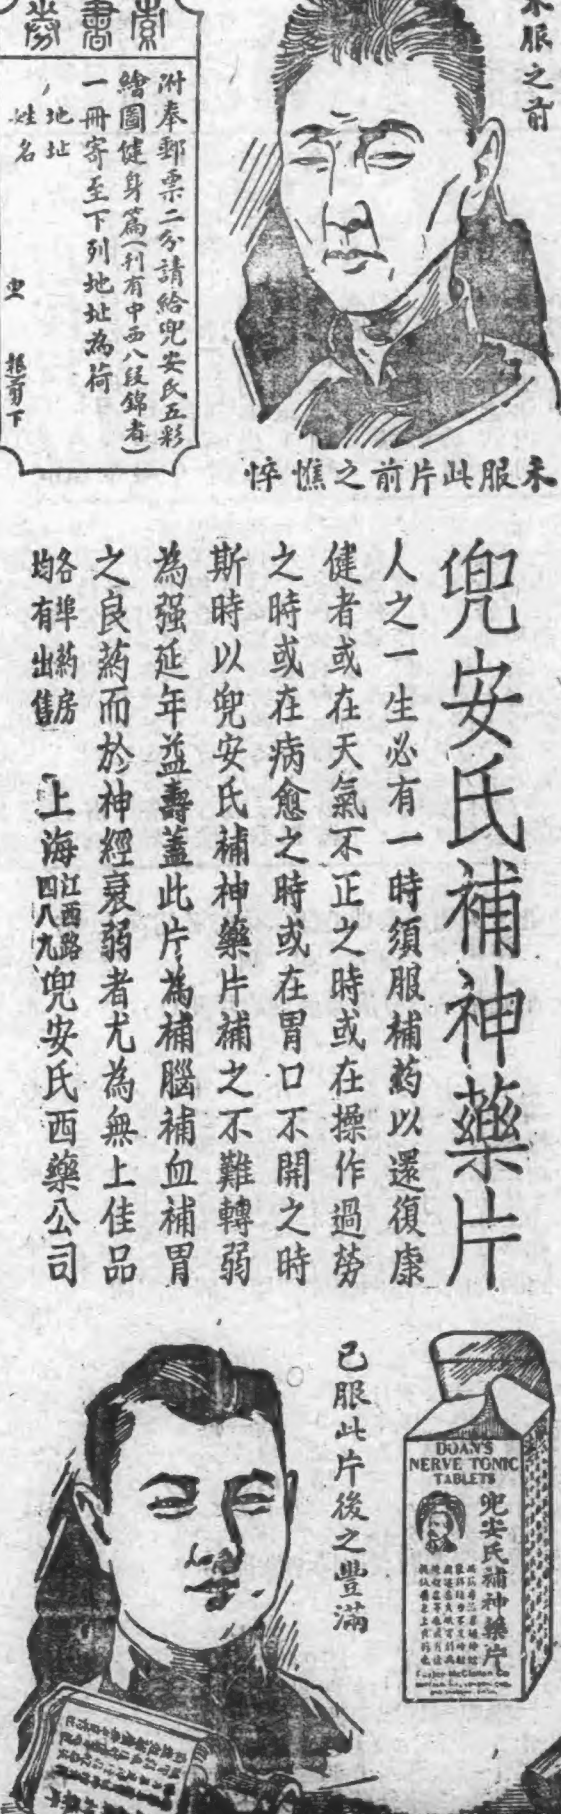 服之前
未服此片前之憔悴
索書券
附奉郵票二分請給兜安氏五彩
繪圖健身篇(刊有中西八段錦者)
一冊寄至下列地址為荷
地址
姓名
兜安氏補神藥片
人之一生必有一時須服補药以還復康
健者或在天氣不正之時或在操作過勞
之時或在病愈之時或在胃口不開之時
斯時以兜安氏補神藥片補之不難轉弱
為强延年益壽蓋此片為補腦補血補胃
之良药而於神經衰弱者尤為無上佳品
各埠药房
均有出售
上海江西路四八九兜安氏西藥公司
已服此片後之豐滿
DOAN'S
NERVE TONIC
TABLETS
兜安氏補神藥片
Foster-McClellan Co